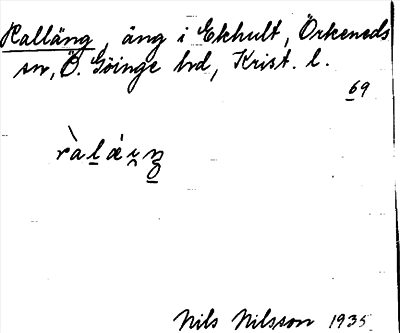 Ralläng, äng i Ekhult, Örkeneds
sn, Ö. Göinge hd, Krist. l.
69
Nils Nilsson 1935